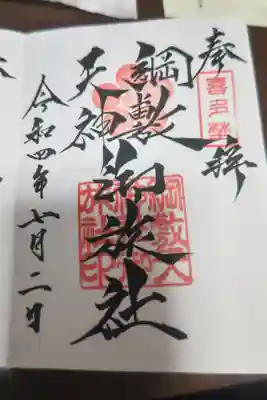 奉拝
喜多埜
綱敷
天神
御旅社
令和四年七月二日